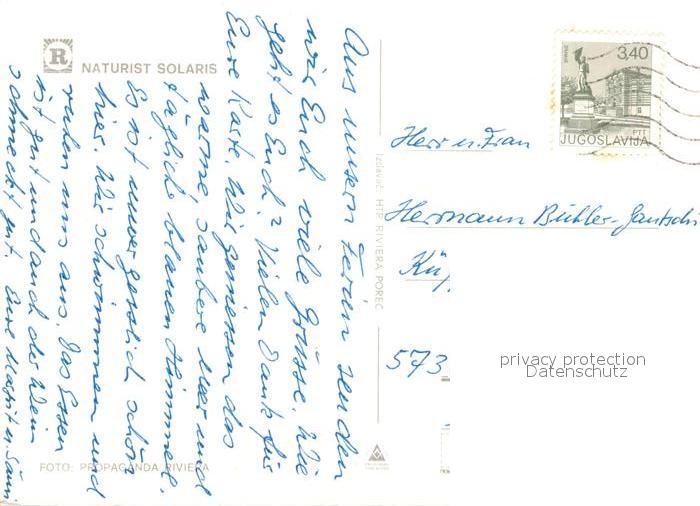 NATURIST SOLARIS
Aus unsern Ferien senden
wir Euch viele Grüsse. Wie
geht es Euch? Vielen Dank für
Eure Karte. Wir geniessen das
warme saubere Meer und
täglich blauen Himmel.
Es ist immer gesslich schön
hier. Wir schwimmen und
ruhen uns aus. Das Essen
ist gut und auch der Wein
schmeckt gut. Eure
FOTO: PROPAGANDA RIVIERA
Izdavač: HTP RIVIERA POREČ
3,40
PTT
JUGOSLAVIJA
Herr u. Frau
Hermann Bühler-Gautschi
573
privacy protection
Datenschutz